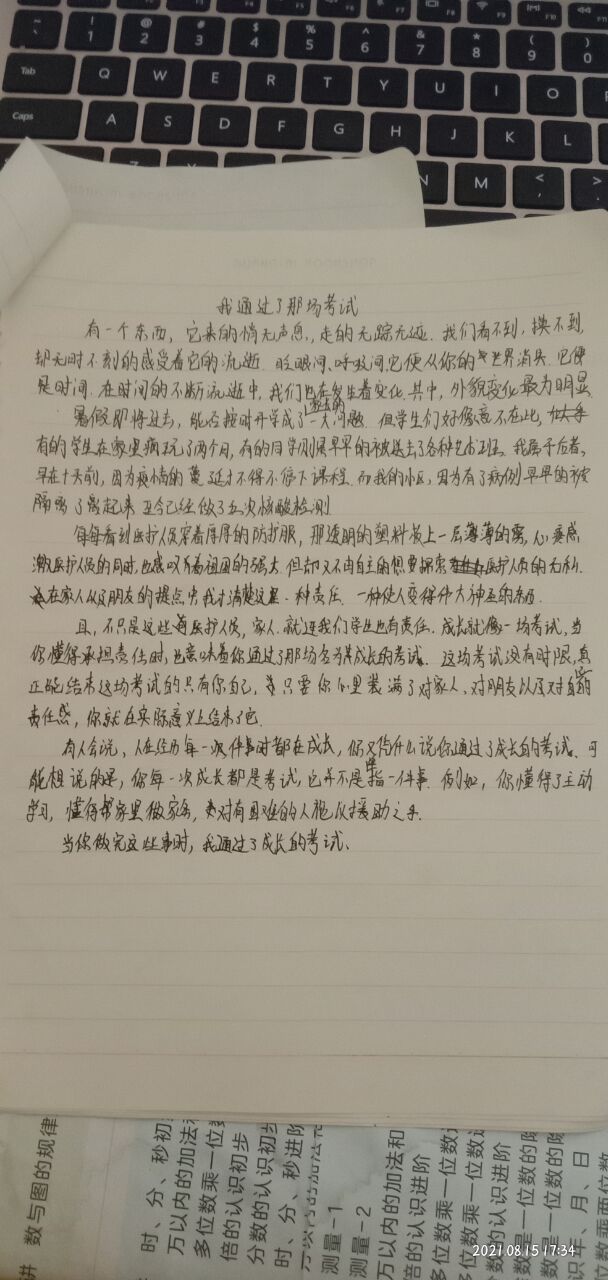 ! 1
@ 2
# 3
$ 4
% 5
^ 6
& 7
* 8
( 9
) 0
Tab Q W E R T Y U I O
Caps A S D F G H J K L
N M < ,
我通过了那场考试
有一个东西，它来的悄无声息，走的无踪无迹，我们看不到，摸不到，
却无时不刻的感受着它的流逝。眨眼间、呼救间它便从你的世界消失。它便
是时间。在时间的不断流逝中，我们也在发生着变化。其中，外貌变化最为明显。
暑假即将过去，能否按时开学成了一大问题。但学生们好像意不在此，
有的学生在家里疯玩了两个月，有的同学则是早早的被送去了各种艺术班。我属于后者，
早在十天前，因为疫情的蔓延才不得不停下课程。而我的小区，因为有了病例早早的被
隔离了起来 至今已经做了五次核酸检测
每每看到医护人员穿着厚厚的防护服，那透明的塑料板上一层薄薄的雾，心疼感
医护人员的同时，也感叹着祖国的强大。但却又不由自主的想要探索医护人员的无私。
在家人以及朋友的提点中我才清楚这是一种责任。一种使人变得伟大神圣的东西。
且，不只是这些医护人员，家人。就连我们学生也有责任。成长就像一场考试，当
你懂得承担责任时，也意味着你通过了那场名为成长的考试。这场考试没有时限，真
正能结束这场考试的只有你自己，只要你心里装满了对家人、对朋友以及对自己的
责任感，你就在实际意义上结束了它。
有人会说，人在经历每一次件事时都在成长，你又凭什么说你通过了成长的考试。可
能想说的是，你每一次成长都是考试，它并不是单指一件事。例如，你懂得了主动
学习，懂得帮家里做家务，对有困难的人施以援助之手。
当你做完这些事时，我通过了成长的考试、
讲 数与图的规律
时、分、秒初
万以内的加法和
多位数乘一位数
倍的认识初步
分数的认识初步
时、分、秒进阶
测量-1
测量-2
万以内的加法和
倍的认识进阶
多位数乘一位数
数的认识进阶
数是一位数的除
识年、月、日
2021.08.15 17:34